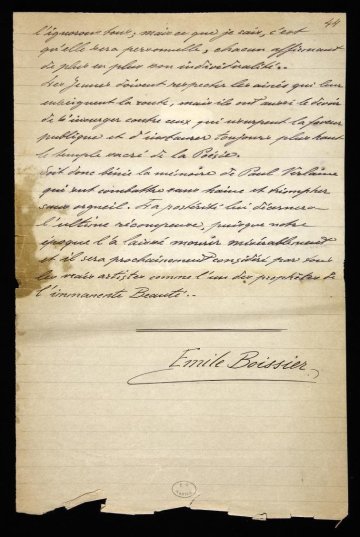 44
l'ignorons tous, mais ce que je sais, c'est
qu'elle sera personnelle, chacun affirmant
de plus en plus son individualité..
Les Jeunes doivent respecter les aînés qui leur
enseignent la route, mais ils ont aussi le devoir
de s'insurger contre ceux qui usurpent la faveur
publique et d'instaurer toujours plus haut
le temple sacré de la Poésie.
Soit donc bénie la mémoire de Paul Verlaine
qui sut combattre sans haine et triompher
sans orgueil. La postérité lui décernera
l'ultime récompense, puisque notre
époque l'a laissé mourir misérablement
et il sera prochainement considéré par tous
les vrais artistes comme l'un des prophètes de
l'immanente Beauté..
Emile Boissier.